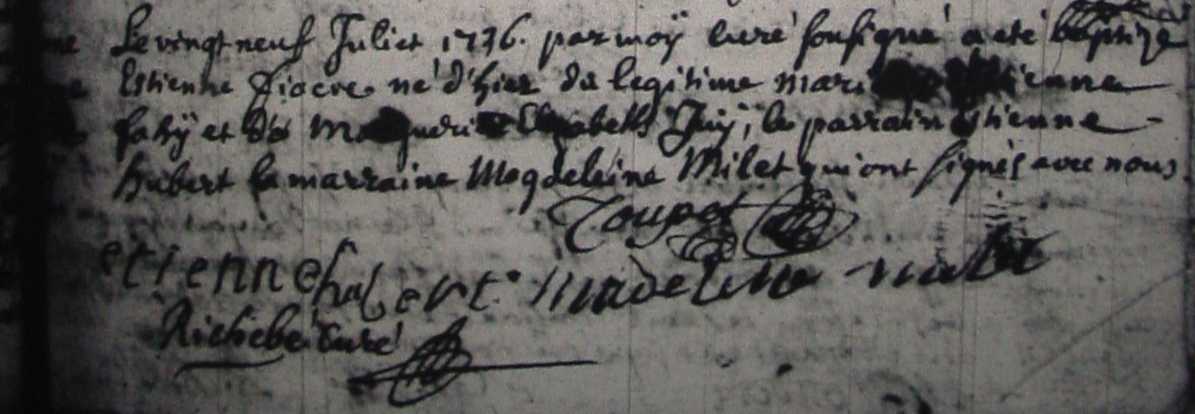 Le vingt neuf Juliet 1736. par moÿ curé sousigné a eté baptize
Estienne fiacre né d'hier du legitime mari Estienne
et de Elizabeth Juÿ, le parrain Estienne
hubert la marraine Magdeleine Milet qui ont signés avec nous
Toupet
etienne hubert. madeleine milet
Richebé curé